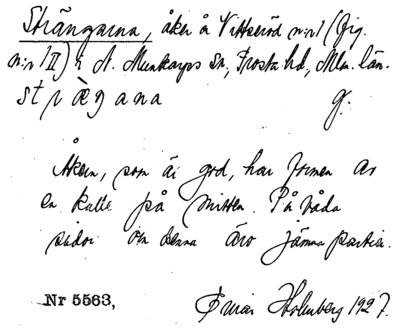 Strängarna, åker å Vittseröd n:r 1 (fig.
n:r 1 II) i N. Munkarps sn, Frosta hd, Mlm. län.
strägana g.
Åkern, som är god, har formen av
en kulle på mitten. På båda
sidor om denna äro jämna partier.
Nr 5563, Einar Holmberg 1927.